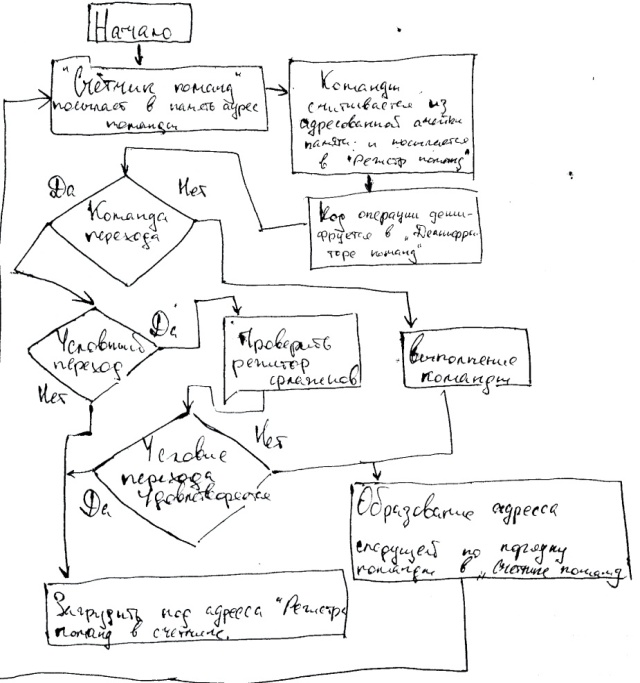 Начало
"Счётчик команд"
посылает в память адрес
команды
Команды
считывается из
адресованной ячейки
памяти и посылается
в "Регистр команд"
Да
Нет
Команда
перехода
Код операции деши-
фруется в „Дешифра-
торе команд"
Условный
переход
Да
Нет
Проверить
регистр
флаженов
Выполнение
команды
Условие
перехода
Удовлетворяется
Нет
Да
Образование адресса
следущей по порядку
команды в „Счетчике" команд
Загрудить код адресса "Регистра
команд в счетчике.